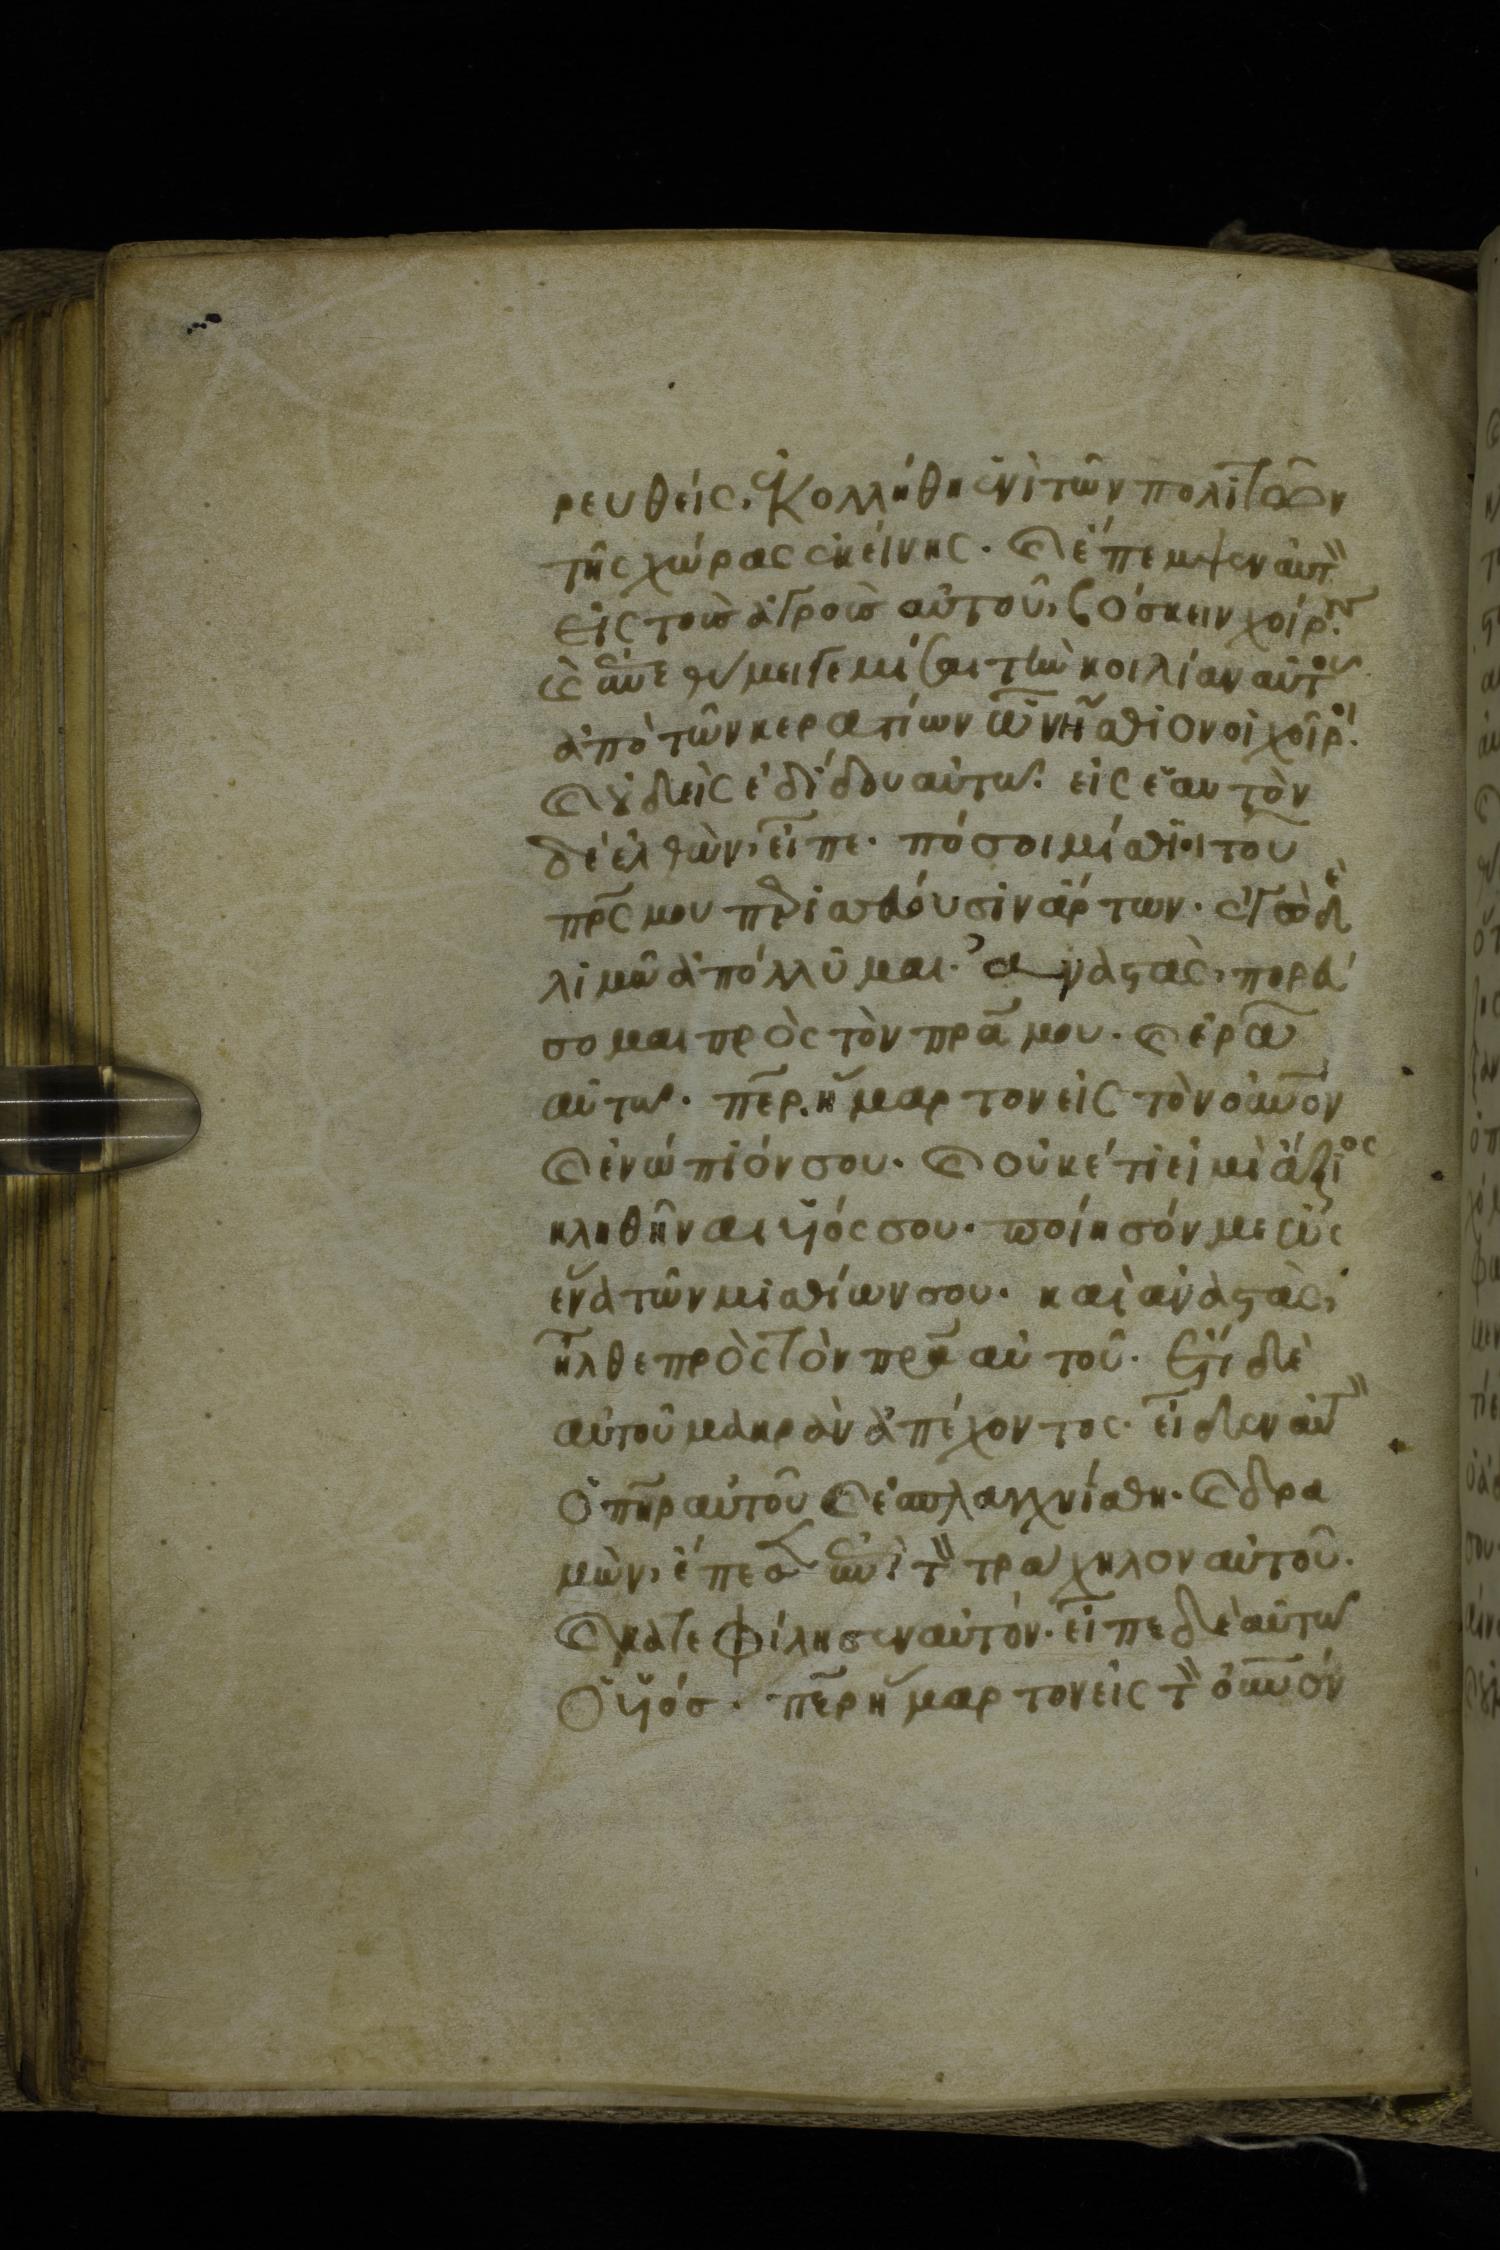 ρευθείς, ἐκολλήθη ἑνὶ τῶν πολιτῶν
τῆς χώρας ἐκείνης. καὶ ἔπεμψεν αὐτ
εἰς τοὺς ἀγροὺς αὐτοῦ, βόσκειν χοίρους.
καὶ ἐπεθύμει γεμίσαι τὴν κοιλίαν αὐτοῦ
ἀπὸ τῶν κερατίων ὧν ἤσθιον οἱ χοῖροι.
καὶ οὐδεὶς ἐδίδου αὐτῷ. εἰς ἑαυτὸν
δὲ ἐλθὼν, εἶπε. πόσοι μίσθιοι τοῦ
πρς μου περισσεύουσιν ἄρτων. ἐγὼ δὲ
λιμῷ ἀπόλλυμαι. ἀναστὰς, πορεύ
σομαι πρὸς τὸν πρα μου. καὶ ἐρῶ
αὐτῷ. περ. ἥμαρτον εἰς τὸν οὐνον
καὶ ἐνώπιόν σου. καὶ οὐκέτι εἰμὶ ἄξιος
κληθῆναι υἱός σου. ποίησόν με ὡς
ἕνα τῶν μισθίων σου. καὶ ἀναστὰς,
ἦλθε πρὸς τὸν πρα αὐτοῦ. ἔτι δὲ
αὐτοῦ μακρὰν ἀπέχοντος. εἶδεν αὐτ
ὁ πηρ αὐτοῦ καὶ ἐσπλαγχνίσθη. καὶ δρα
μὼν, ἔπεσεν ἐπὶ τ τράχηλον αὐτοῦ.
καὶ κατεφίλησεν αὐτόν. εἶπε δὲ αὐτῷ
ὁ υἱός. περ ἥμαρτον εἰς τ οὐνόν